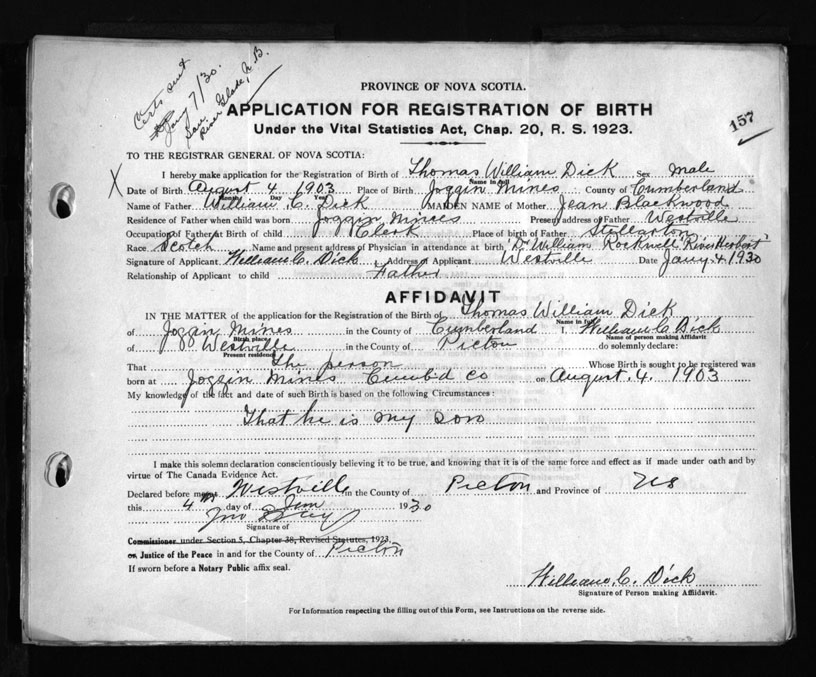 Certs sent
Jany 7/30.
River Glade, N. B.
PROVINCE OF NOVA SCOTIA.
APPLICATION FOR REGISTRATION OF BIRTH
157
Under the Vital Statistics Act, Chap. 20, R. S. 1923.
TO THE REGISTRAR GENERAL OF NOVA SCOTIA:
I hereby make application for the Registration of Birth of Thomas William Dick Sex Male
Name in full
X Date of Birth August 4 1903 Place of Birth Joggin Mines County of Cumberland
Month Day Year
Name of Father William C. Dick MAIDEN NAME of Mother Jean Blackwood
Residence of Father when child was born Joggin Mines Present address of Father Westville
Occupation of Father at Birth of child Clerk Place of birth of Father Stellarton
Race Scotch Name and present address of Physician in attendance at birth Dr William Rockwell "River Herbert"
Signature of Applicant William C. Dick Address of Applicant Westville Date Jany 4 1930
Relationship of Applicant to child Father
AFFIDAVIT
IN THE MATTER of the application for the Registration of the Birth of Thomas William Dick
Name in full
of Joggin Mines in the County of Cumberland I, William C Dick
Birth place Name of person making Affidavit
of Westville in the County of Picton do solemnly declare:
Present residence
That The person Whose Birth is sought to be registered was
born at Joggin Mines Cumb'd Co on August 4. 1903
My knowledge of the fact and date of such Birth is based on the following Circumstances:
That he is my son
I make this solemn declaration conscientiously believing it to be true, and knowing that it is of the same force and effect as if made under oath and by
virtue of The Canada Evidence Act.
Declared before me at Westville in the County of Picton and Province of NS
this 4th day of Jan 1930
Signature of
Commissioner under Section 5, Chapter 38, Revised Statutes, 1923,
or Justice of the Peace in and for the County of Picton
If sworn before a Notary Public affix seal.
William. C. Dick
Signature of Person making Affidavit.
For Information respecting the filling out of this Form, see Instructions on the reverse side.